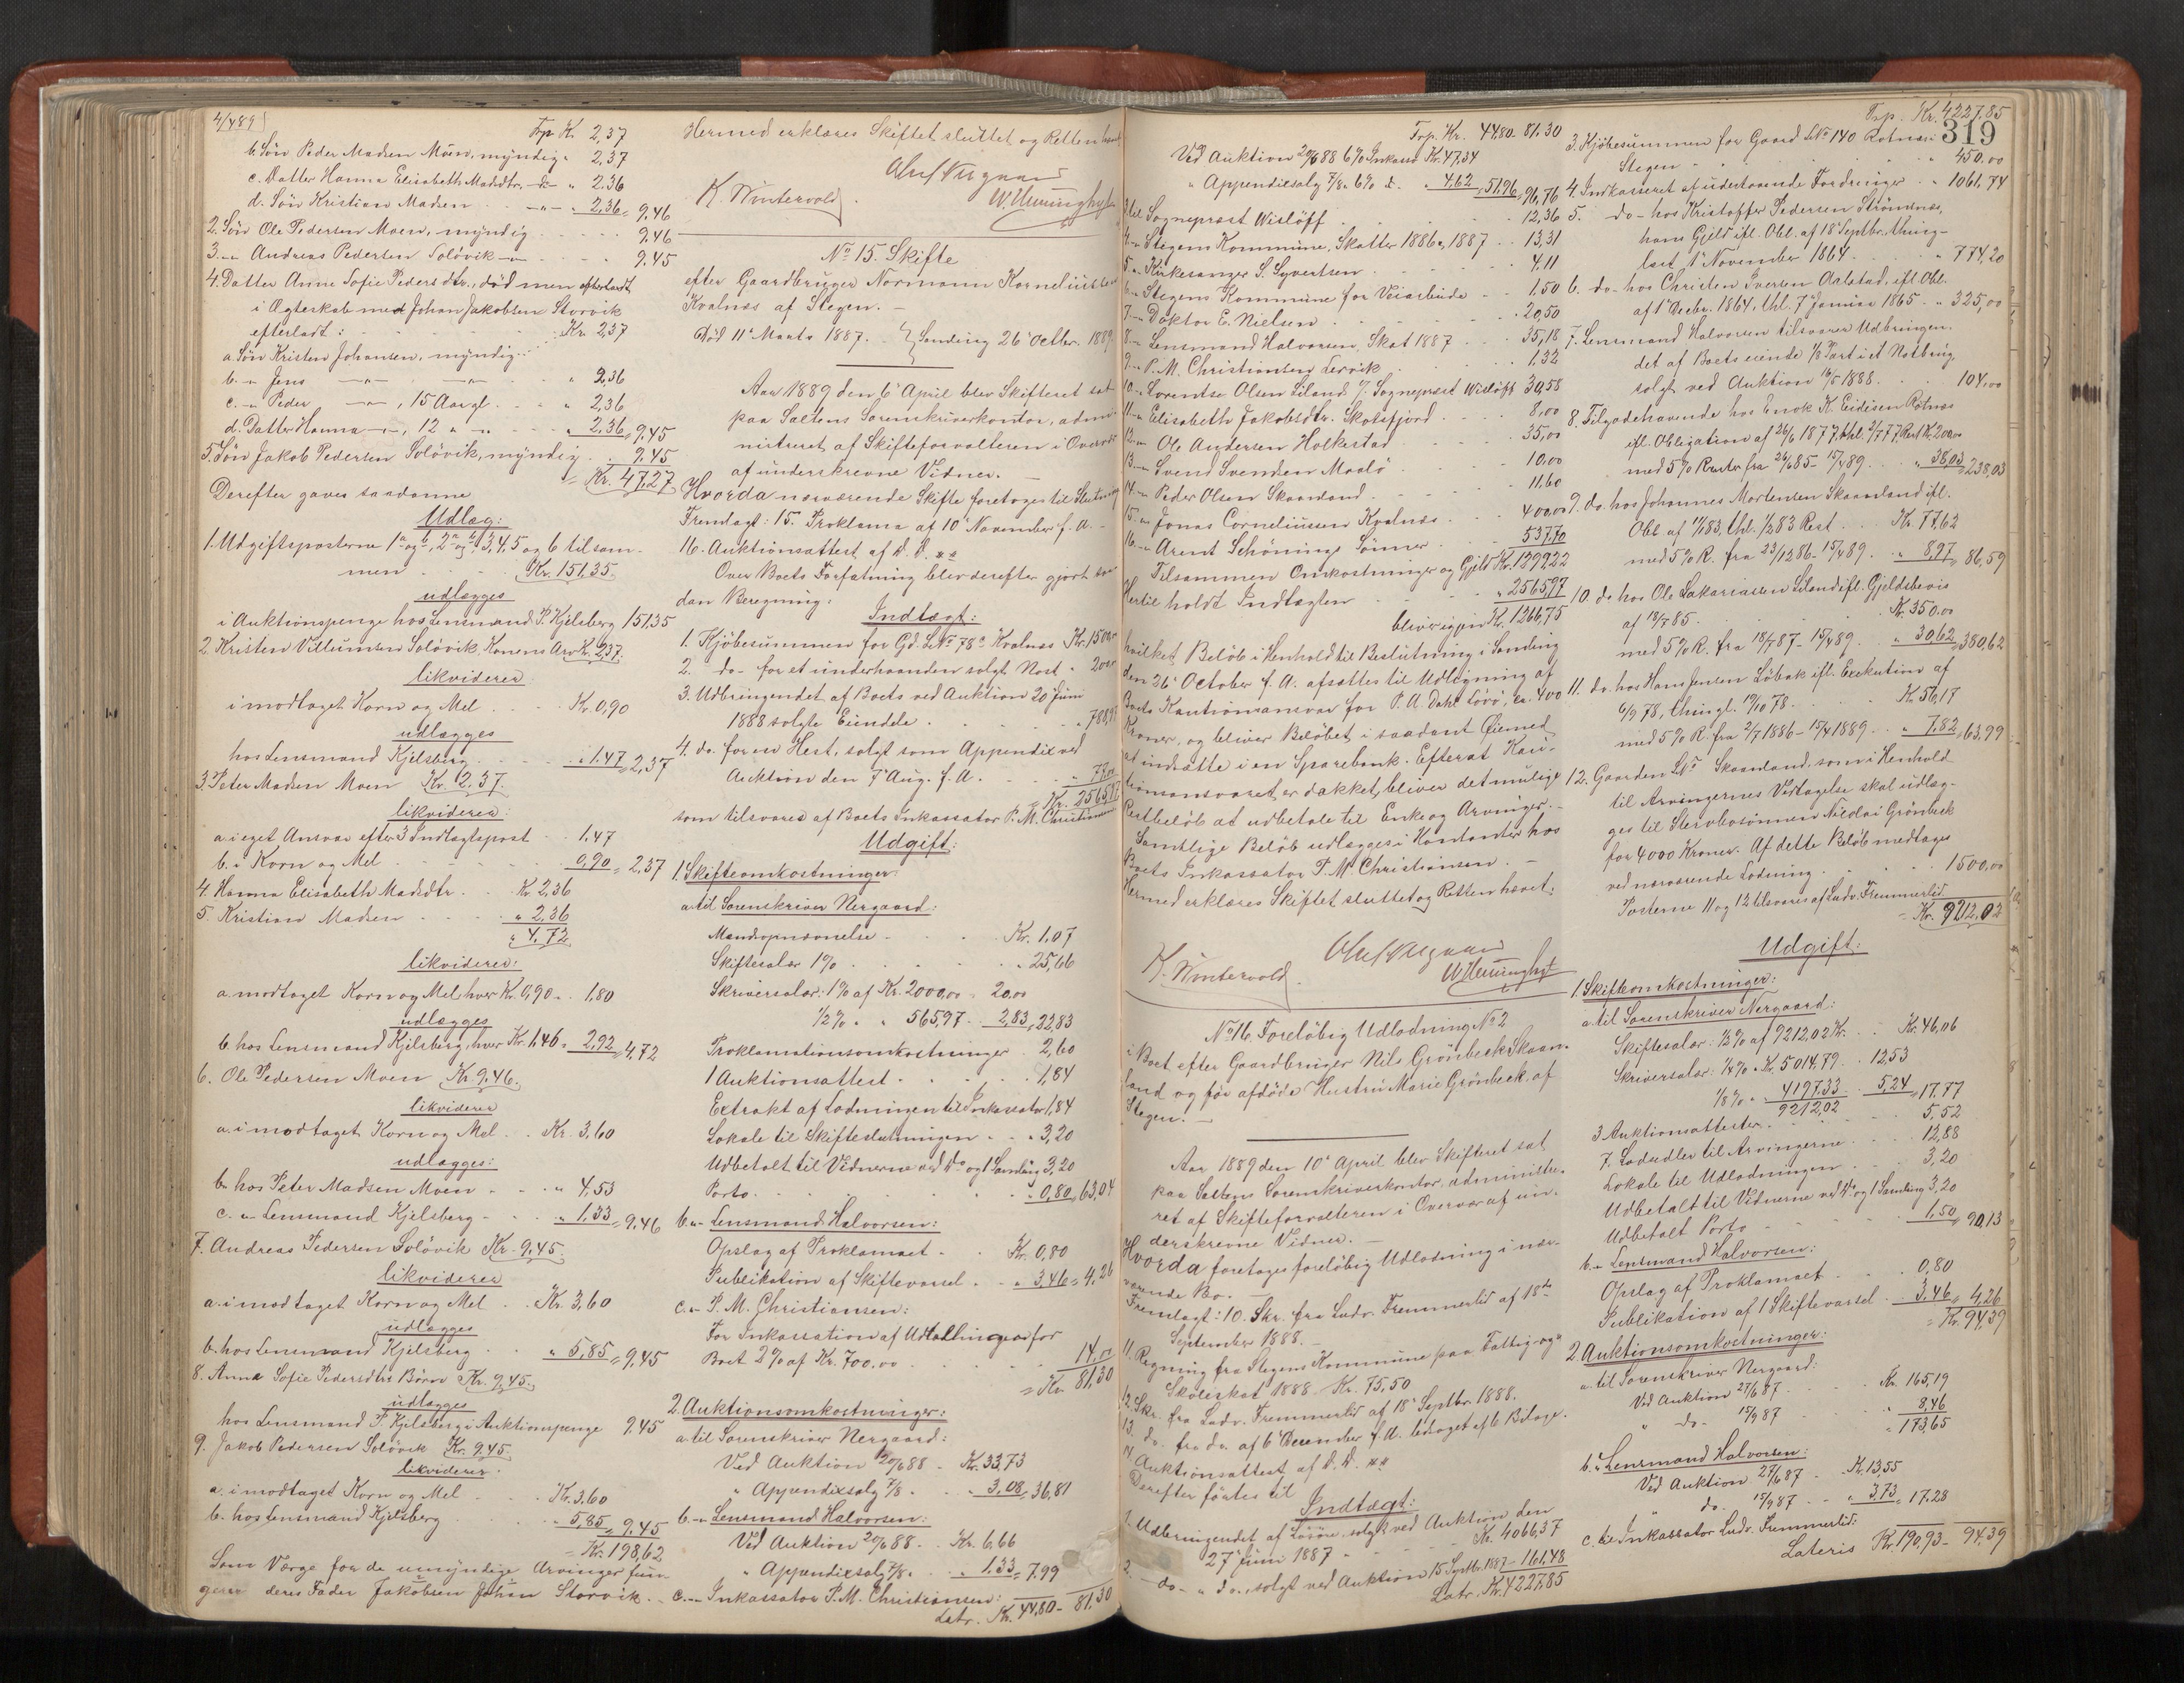 4/4 89
Trp. Kr. 2,37
b. Søn Peder Madsen Moen, myndig " 2,37
c. Datter Hanna Elisabeth Madsdtr. -do- " 2,36
d. Søn Kristian Madsen -"- " 2,36 = 9,46
2. Søn Ole Pedersen Moen, myndig 9,46
3. -"- Andreas Pedersen Soløvik -"- 9,45
4. Datter Anne Sofie Pedersdtr., død men efterladt
i Ægteskab med Johan Jakobsen Storvik
efterladt: Kr. 2,37
a. Søn Kristen Johansen, myndig
b. -"- Jens -"- -"- " 2,36
c. -"- Peder -"-, 15 Aar gl. " 2,36
d. Datter Hanna -"-, 12 " -"- " 2,36 = 9,45
5. Søn Jakob Pedersen Soløvik, myndig 9,45
= Kr. 47,27
Derefter gaves saadanne
Udlæg:
1. Udgiftsposterne 1 a og b, 2 a og b, 3, 4, 5 og 6 tilsam-
men Kr. 151,35
udlægges
i Auktionspenge hos Lensmand P. Kjelsberg 151,35
2. Kristen Villumsen Soløvik, Konens Arv Kr. 2,37
likviderer
i modtaget Korn og Mel Kr. 0,90
udlægges
hos Lensmand Kjelsberg " 1.47 = 2,37
3. Peter Madsen Moen Kr. 2,37.
likviderer:
a. i eget Ansvar efter 3 Indtægtspost 1.47
b. i Korn og Mel 0,90 = 2,37
4. Hanna Elisabeth Madsdtr. Kr. 2,36
5. Kristian Madsen " 2,36
" 4,72
likviderer:
a. modtaget Korn og Mel, hver Kr. 0,90 = 1,80
udlægges
b. hos Lensmand Kjelsberg, hver Kr. 1,46 = 2,92 = 4,72
6. Ole Pedersen Moen Kr. 9,46.
likviderer
a. i modtaget Korn og Mel Kr. 3,60
udlægges:
b. hos Peter Madsen Moen " 4,53
c. -"- Lensmand Kjelsberg " 1,33 = 9,46
7. Andreas Pedersen Soløvik Kr. 9,45.
likviderer
a. i modtaget Korn og Mel Kr. 3,60
udlægges
b. hos Lensmand Kjelsberg " 5,85 = 9,45
8. Anna Sofie Pedersdtrs Børn Kr. 9,45.
udlægges
hos Lensmand P. Kjelsberg i Auktionspenge 9.45
9. Jakob Pedersen Soløvik Kr. 9,45.
likviderer.
a. i modtaget Korn og Mel Kr. 3,60
b. hos Lensmand Kjelsberg " 5,85 = 9,45
= Kr. 198,62
Som Værge for de umyndige Arvinger fun-
gerer deres Fader Jakobsen Johan Storvik.
Hermed erklæres Skiftet sluttet og Retten hævet
K. Wintervold.
No 15. Skifte
efter Gaardbruger Normann Korneliussen
Kvalnæs af Stegen. -
Død 11te Marts 1887. Samling 26' Octbr. 1889.
Aar 1889 den 6' April blev Skifteret sat
paa Saltens Sorenskriverkontor, admi-
nistreret af Skifteforvalteren i Overvær
af underskrevne Vidner. -
Hvorda nærværende Skifte foretages til Slutning
Fremlagt: 15. Proklama af 10' November f. A. -
16. Auktionsattest af D. D.
Over Boets Forfatning blev derefter gjort saa-
dan Beregning:
Indtægt:
1. Kjøbesummen for Gd. L.No 78a Kvalnæs Kr. 1500,00
2. do- for et underhaanden solgt Nost " 200,00
3. Udbringendet af Boets ved Auktion 20' Juni
1888 solgte Eiendele " 788,97
4. do. for en Hest, solgt som Appendix ved
Auktion den 7' Aug. f. A. " 77,00
= Kr. 2565,97
som tilsvares af Boets Inkassator P. M. Christiansen
Udgift:
1. Skifteomkostninger:
a. til Sorenskriver Nergaard:
Kr. 1,07
Skiftesalær 1% " 25,66
Skriversalær: 1% af Kr. 2000,00 = 20,00
1/2% " " 565,97 2,83 = 22,83
Proklamationsomkostninger 2,60
1 Auktionsattest 1,84
Extrakt af Lodningen til Inkassator 1,84
Lokale til Skifteslutningen 3,20
Udbetalt til Vidnerne ved Do og 1 Samling 3,20
Porto " 0,80 = 63,04
b. -"- Lensmand Halvorsen:
Opslag af Proklamaet Kr. 0,80
Publikation af Skiftevarsel " 3,46 = 4,26
c. -"- P. M. Christiansen:
For Inkassation af Udtællinger for
Boet 2% af Kr. 700,00 14,00
= Kr. 81,30
2. Auktionsomkostninger:
a. til Sorenskriver Nergaard:
Ved Auktion 20/6 88 Kr. 33,73
" Appendixsalg 7/8 " 3,08 = 36,81
b. -"- Lensmand Halvorsen:
Ved Auktion 20/6 88 Kr. 6,66
" Appendixsalg 7/8 " 1,33 = 7,99
c. -"- Inkassator P. M. Christiansen:
Latr. Kr. 44,80 - 81,30
Trp. Kr. 44,80 - 81,30
Ved Auktion 20/6 88 6% Inkasso Kr. 47,34
" Appendixsalg 7/8 - 6% do. " 4,62 = 51,96 = 96,76
3. til Sogneprest Wisløff 12,36
4. -"- Stegens Kommune, Skatter 1886 og 1887 13,31
5. -"- Kirkesanger S. Syvertsen 4,11
6. -"- Stegens Kommune for Veiarbeide 1,50
7. -"- Doktor E. Nielsen 20,50
8. -"- Lensmand Halvorsen, Skat 1887 35,18
9. -"- P. M. Christiansen Lervik 1,32
10. -"- Lorentse Olsen Leland v/ Sogneprest Wisløff 30,58
11. -"- Elisabeth Jakobsdtr. Skotsfjord 8,00
12. -"- Ole Andersen Holkestad 35,00
13. -"- Svend Svendsen Maalø 10,00
14. -"- Peder Olsen Skaanland 11,60
15. -"- Jonas Corneliussen Kvalnæs 400,00
16. -"- Arent Schønings Sønner 537,70
Tilsammen Omkostninger og Gjeld Kr. 1299,22
Hertil holdt Indtægten " 2565,97
bliver igjen Kr. 1266,75
hvilket Beløb i Henhold til Beslutning i Samling
den 26' October f. A. afsættes til Udlægning af
Boets Kautionsansvar for P. A. Dahl, ca. 400
Kroner, og bliver Beløbet i saadant Øiemed
at indsætte i en Sparebank. Efterat Kau-
tionsansvaret er dækket, bliver det mulige
Restbeløb at udbetale til Enke og Arvinger. -
Samtlige Beløb udlægges i Kontanter hos
Boets Inkassator P. M. Christiansen. -
Hermed erklæres Skiftet sluttet og Retten hævet.
K. Wintervold.
No 16. Foreløbig Udlodning No 2
i Boet efter Gaardbruger Nils Grønbech Skaan-
land og før afdøde Hustru Marie Grønbeck, af
Stegen. -
Aar 1889 den 10' April blev Skifteret sat
paa Saltens Sorenskriverkontor, administre-
ret af Skifteforvalteren i Overvær af un-
derskrevne Vidner. -
Hvorda foretages foreløbig Udlodning i nær-
værende Bo. -
Fremlagt: 10. Skr. fra Ludv. Fremmerlid af 18de
September 1888. -
11. Regning fra Stegens Kommune paa Fattig- og
Skoleskat 1888 Kr. 75,50
12. Skr. fra Ludv. Fremmerlid af 18' Septbr. 1888.
13. do. fra do. af 6' December f. A. ledsaget af 6 Bilage.
14. Auktionsattest af D. D.
Derefter førtes til
Indtægt:
1. Udbringendet af Løsøre, solgt ved Auktion den
27' Juni 1887 Kr. 4066,37
2. -do- " do., solgt ved Auktion 15 Septbr. 1887 - 161,48
Latr. Kr. 4227,85
319
Trp. Kr. 4227,85
3. Kjøbesummen for Gaard L.No 140 Rotnæs
Stegen " 450,00
4. Indkasseret af udestaaende Fordringer " 1061,74
5. do- hos Kristoffer Pedersen Strømsnæs,
hans Gjeld ifl. Obl. af 18' Septbr., thing-
læst 1' November 1864 " 774,20
6. do- hos Christen Iversen Aalstad, ifl. Obl.
af 1' Decbr. 1864, thl. 7' Januar 1865 " 325,00
7. Lensmand Halvorsen tilsvarer Udbringen-
det af Boets eiende 1/8 Part i et Notbrug,
solgt ved Auktion 16/5 1888 104,00
8. Tilgodehavende hos Enok H. Eidisen Rotnæs
ifl. Obligation af 26/6 1877, thl. 2/7 77, Rest Kr. 200,00
med 5% Renter fra 26/6 85 - 15/4 89 " 38,03 = 238,03
9. do. hos Johannes Mortensen Skaanland ifl.
Obl. af 1/1 83, thl. 1/2 83 Rest Kr. 77,62
med 5% R. fra 23/12 86 - 15/4 89 " 8,97 = 86,59
10. do hos Ole Zakariassen Leland ifl. Gjeldsbevis
af 18/7 85. Kr. 350,00
med 5% R. fra 18/7 87 - 15/4 89 " 30,62 = 380,62
11. do. hos Hans Jensen Løbak ifl. Exekution af
6/9 78, thingl. 19/10 78. Kr. 56,17
med 5% R. fra 2/7 1886 - 15/4 1889 " 7,82 = 63,99
12. Gaarden L.No Skaanland, som i Henhold
til Arvingernes Vedtagelse skal udlæg-
ges til Stervbosønnen Nicolai Grønbeck
for 4000 Kroner. Af dette Beløb medtages
ved nærværende Lodning 1500,00
Posterne 11 og 12 tilsvares af Ludv. Fremmerlid
= Kr. 9212,02
Udgift:
1. Skifteomkostninger:
a. til Sorenskriver Nergaard:
Skiftesalær: 1/2% af 9212,02 Kr. Kr. 46,06
Skriversalær: 1/4% " Kr. 5014,79 12,53
1/8% " " 4197,33 5,24 = 17,77
9212,02
3 Auktionsattester 5,52
7. Lodsedler til Arvingerne 12,88
Lokale til Udlodningen 3,20
Udbetalt til Vidnerne ved Do og 1 Samling 3,20
Udbetalt Porto 1,50 = 90,13
b. -"- Lensmand Halvorsen:
Opslag af Proklamaet 0,80
Publikation af 1 Skiftevarsel 3,46 = 4,26
= Kr. 94,39
2. Auktionsomkostninger:
a. til Sorenskriver Nergaard:
Ved Auktion 27/6 87 Kr. 165,19
" do- 15/9 87 " 8,46
" 173,65
b. " Lensmand Halvorsen:
Ved Auktion 27/6 87 Kr. 13,55
" do. 15/9 87 " 3,73 = 17,28
c. til Inkassator Ludv. Fremmerlid:
Lateris Kr. 190,93 - 94,39